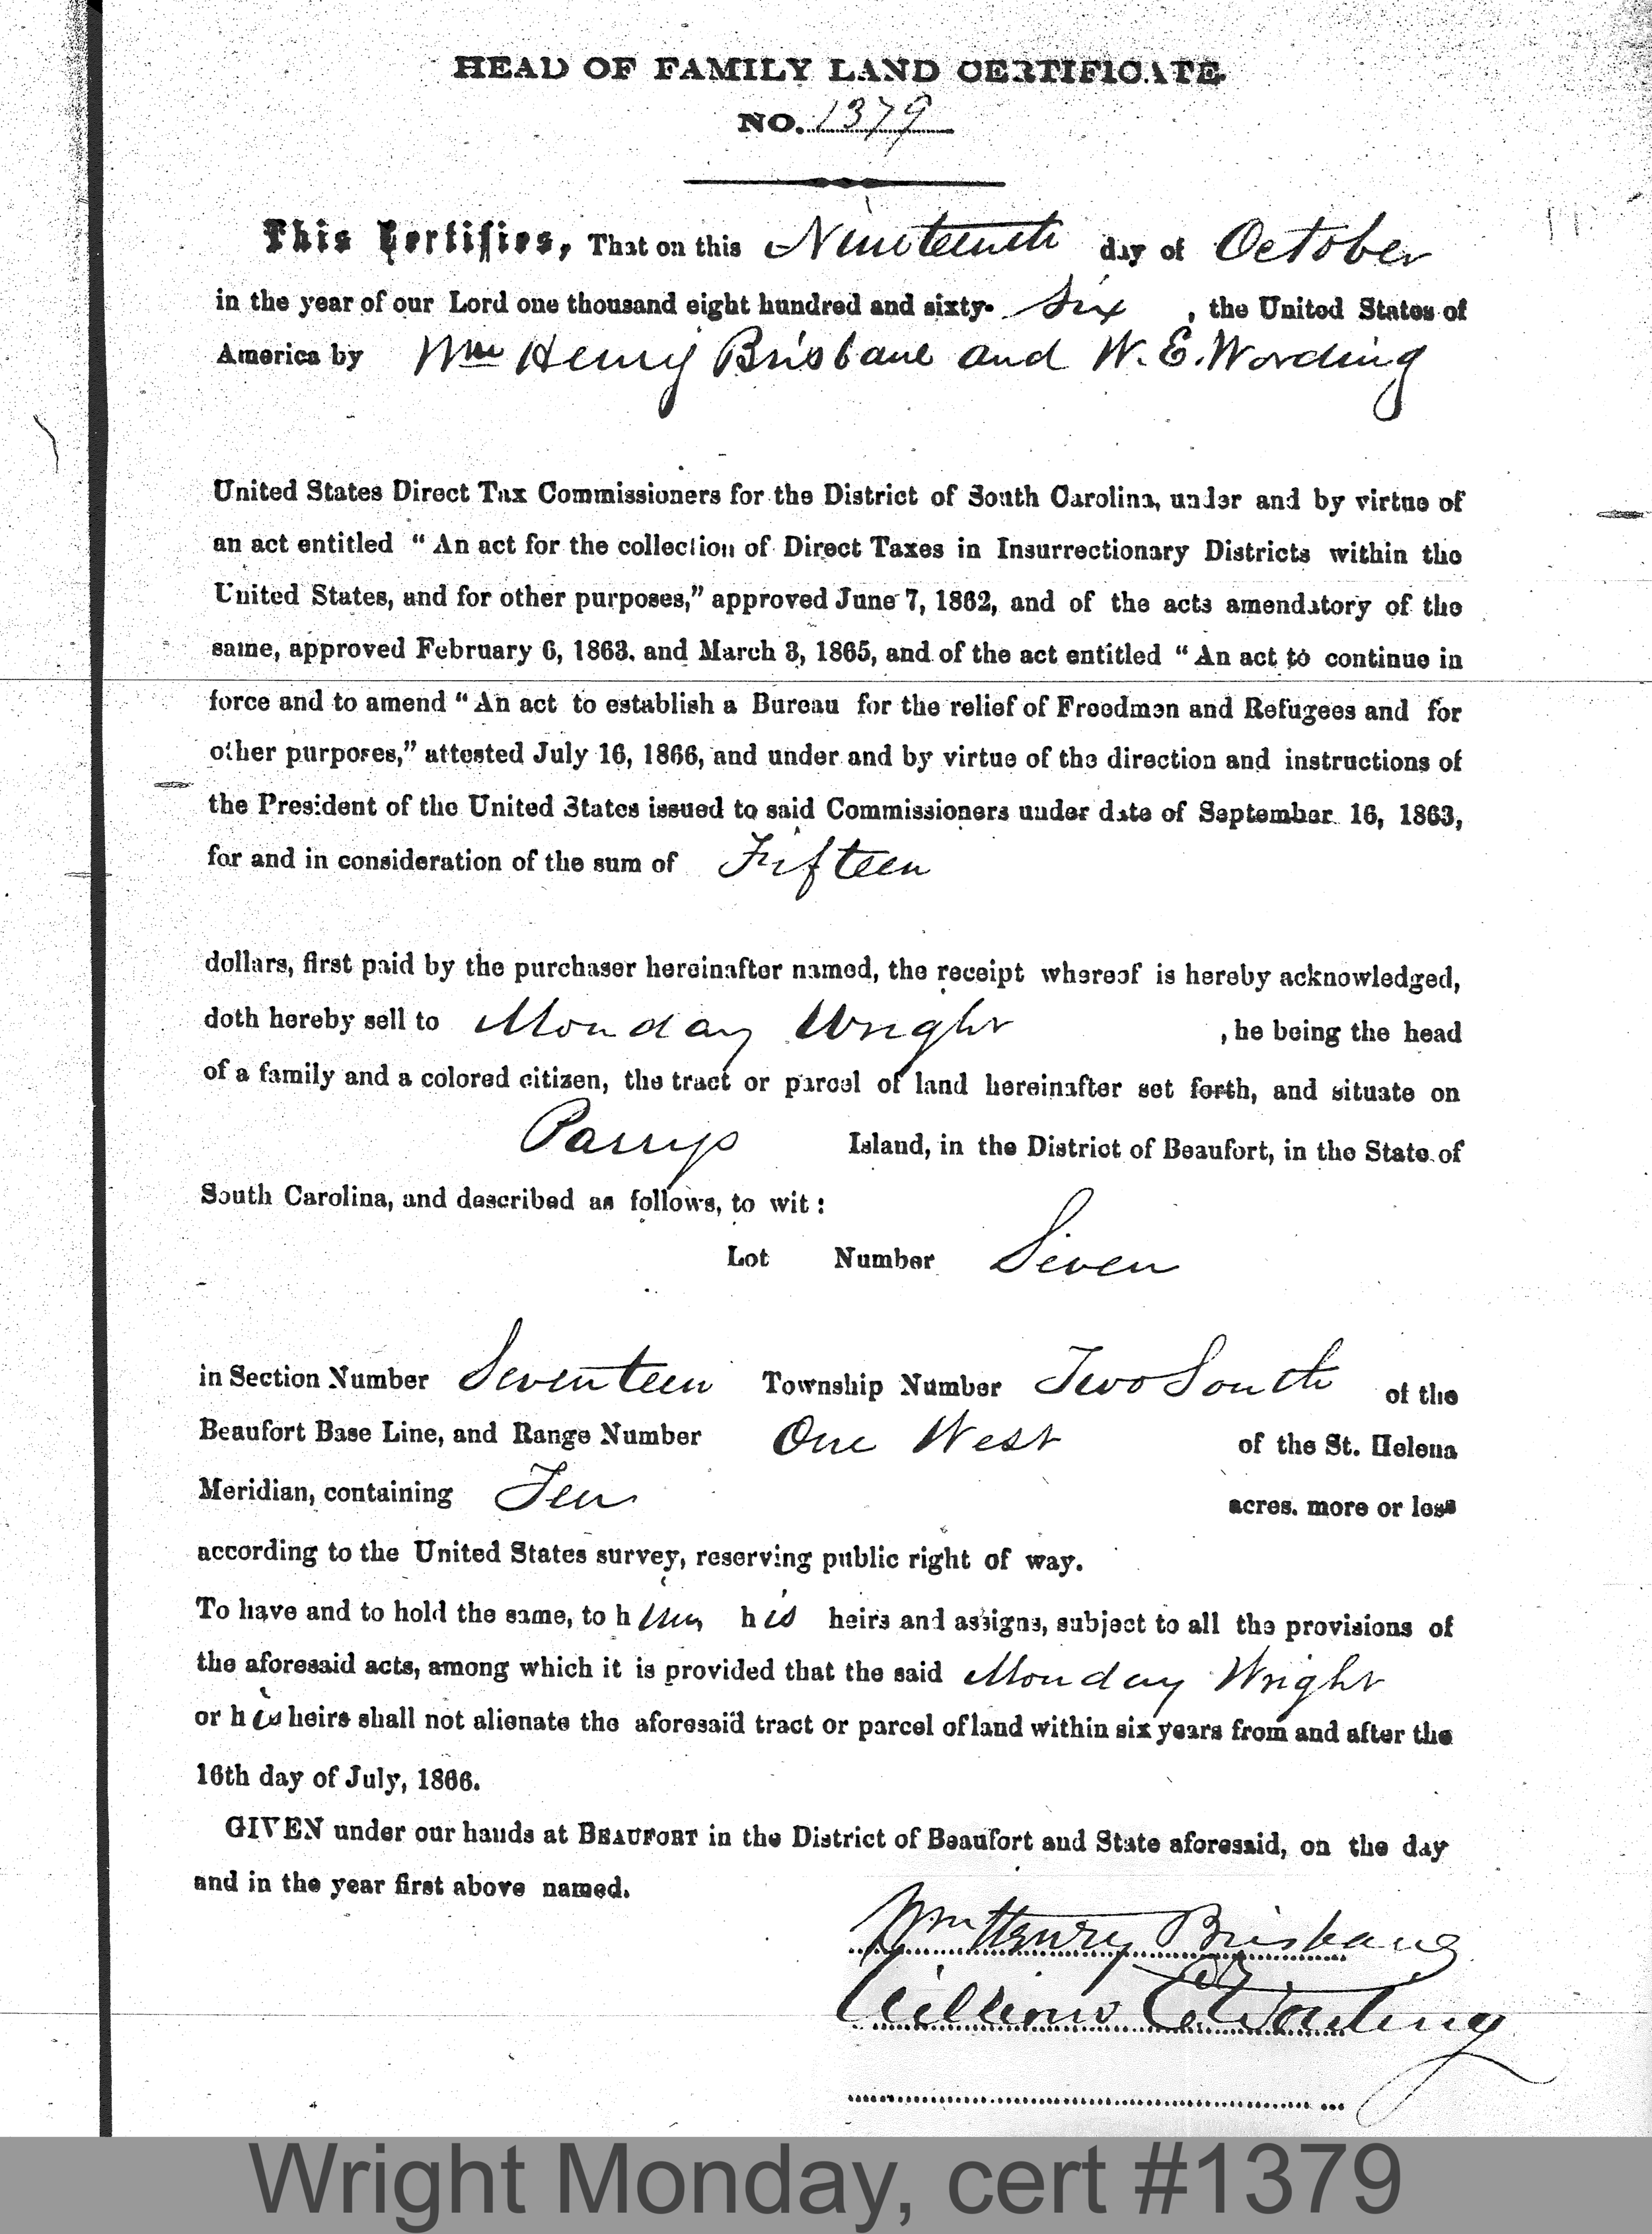 HEAD OF FAMILY LAND CERTIFICATE.
NO. 1379
This Certifies, That on this Nineteenth day of October
in the year of our Lord one thousand eight hundred and sixty- Six , the United States of
America by Wm Henry Brisbane and W. E. Wording
United States Direct Tax Commissioners for the District of South Carolina, under and by virtue of
an act entitled “ An act for the collection of Direct Taxes in Insurrectionary Districts within the
United States, and for other purposes,” approved June 7, 1862, and of the acts amendatory of the
same, approved February 6, 1863. and March 3, 1865, and of the act entitled “ An act to continue in
force and to amend “ An act to establish a Bureau for the relief of Freedmen and Refugees and for
other purposes,” attested July 16, 1866, and under and by virtue of the direction and instructions of
the President of the United States issued to said Commissioners under date of September 16, 1863,
for and in consideration of the sum of Fifteen
dollars, first paid by the purchaser hereinafter named, the receipt whereof is hereby acknowledged,
doth hereby sell to Monday Wright , he being the head
of a family and a colored citizen, the tract or parcel of land hereinafter set forth, and situate on
Parrys Island, in the District of Beaufort, in the State of
South Carolina, and described as follows, to wit :
Lot Number Seven
in Section Number Seventeen Township Number Two South of the
Beaufort Base Line, and Range Number One West of the St. Helena
Meridian, containing Ten acres. more or less
according to the United States survey, reserving public right of way.
To have and to hold the same, to him, his heirs and assigns, subject to all the provisions of
the aforesaid acts, among which it is provided that the said Monday Wright
or his heirs shall not alienate the aforesaid tract or parcel of land within six years from and after the
16th day of July, 1866.
GIVEN under our hands at BEAUFORT in the District of Beaufort and State aforesaid, on the day
and in the year first above named.
Wm Henry Brisbane
William E. Wording
Wright Monday, cert #1379